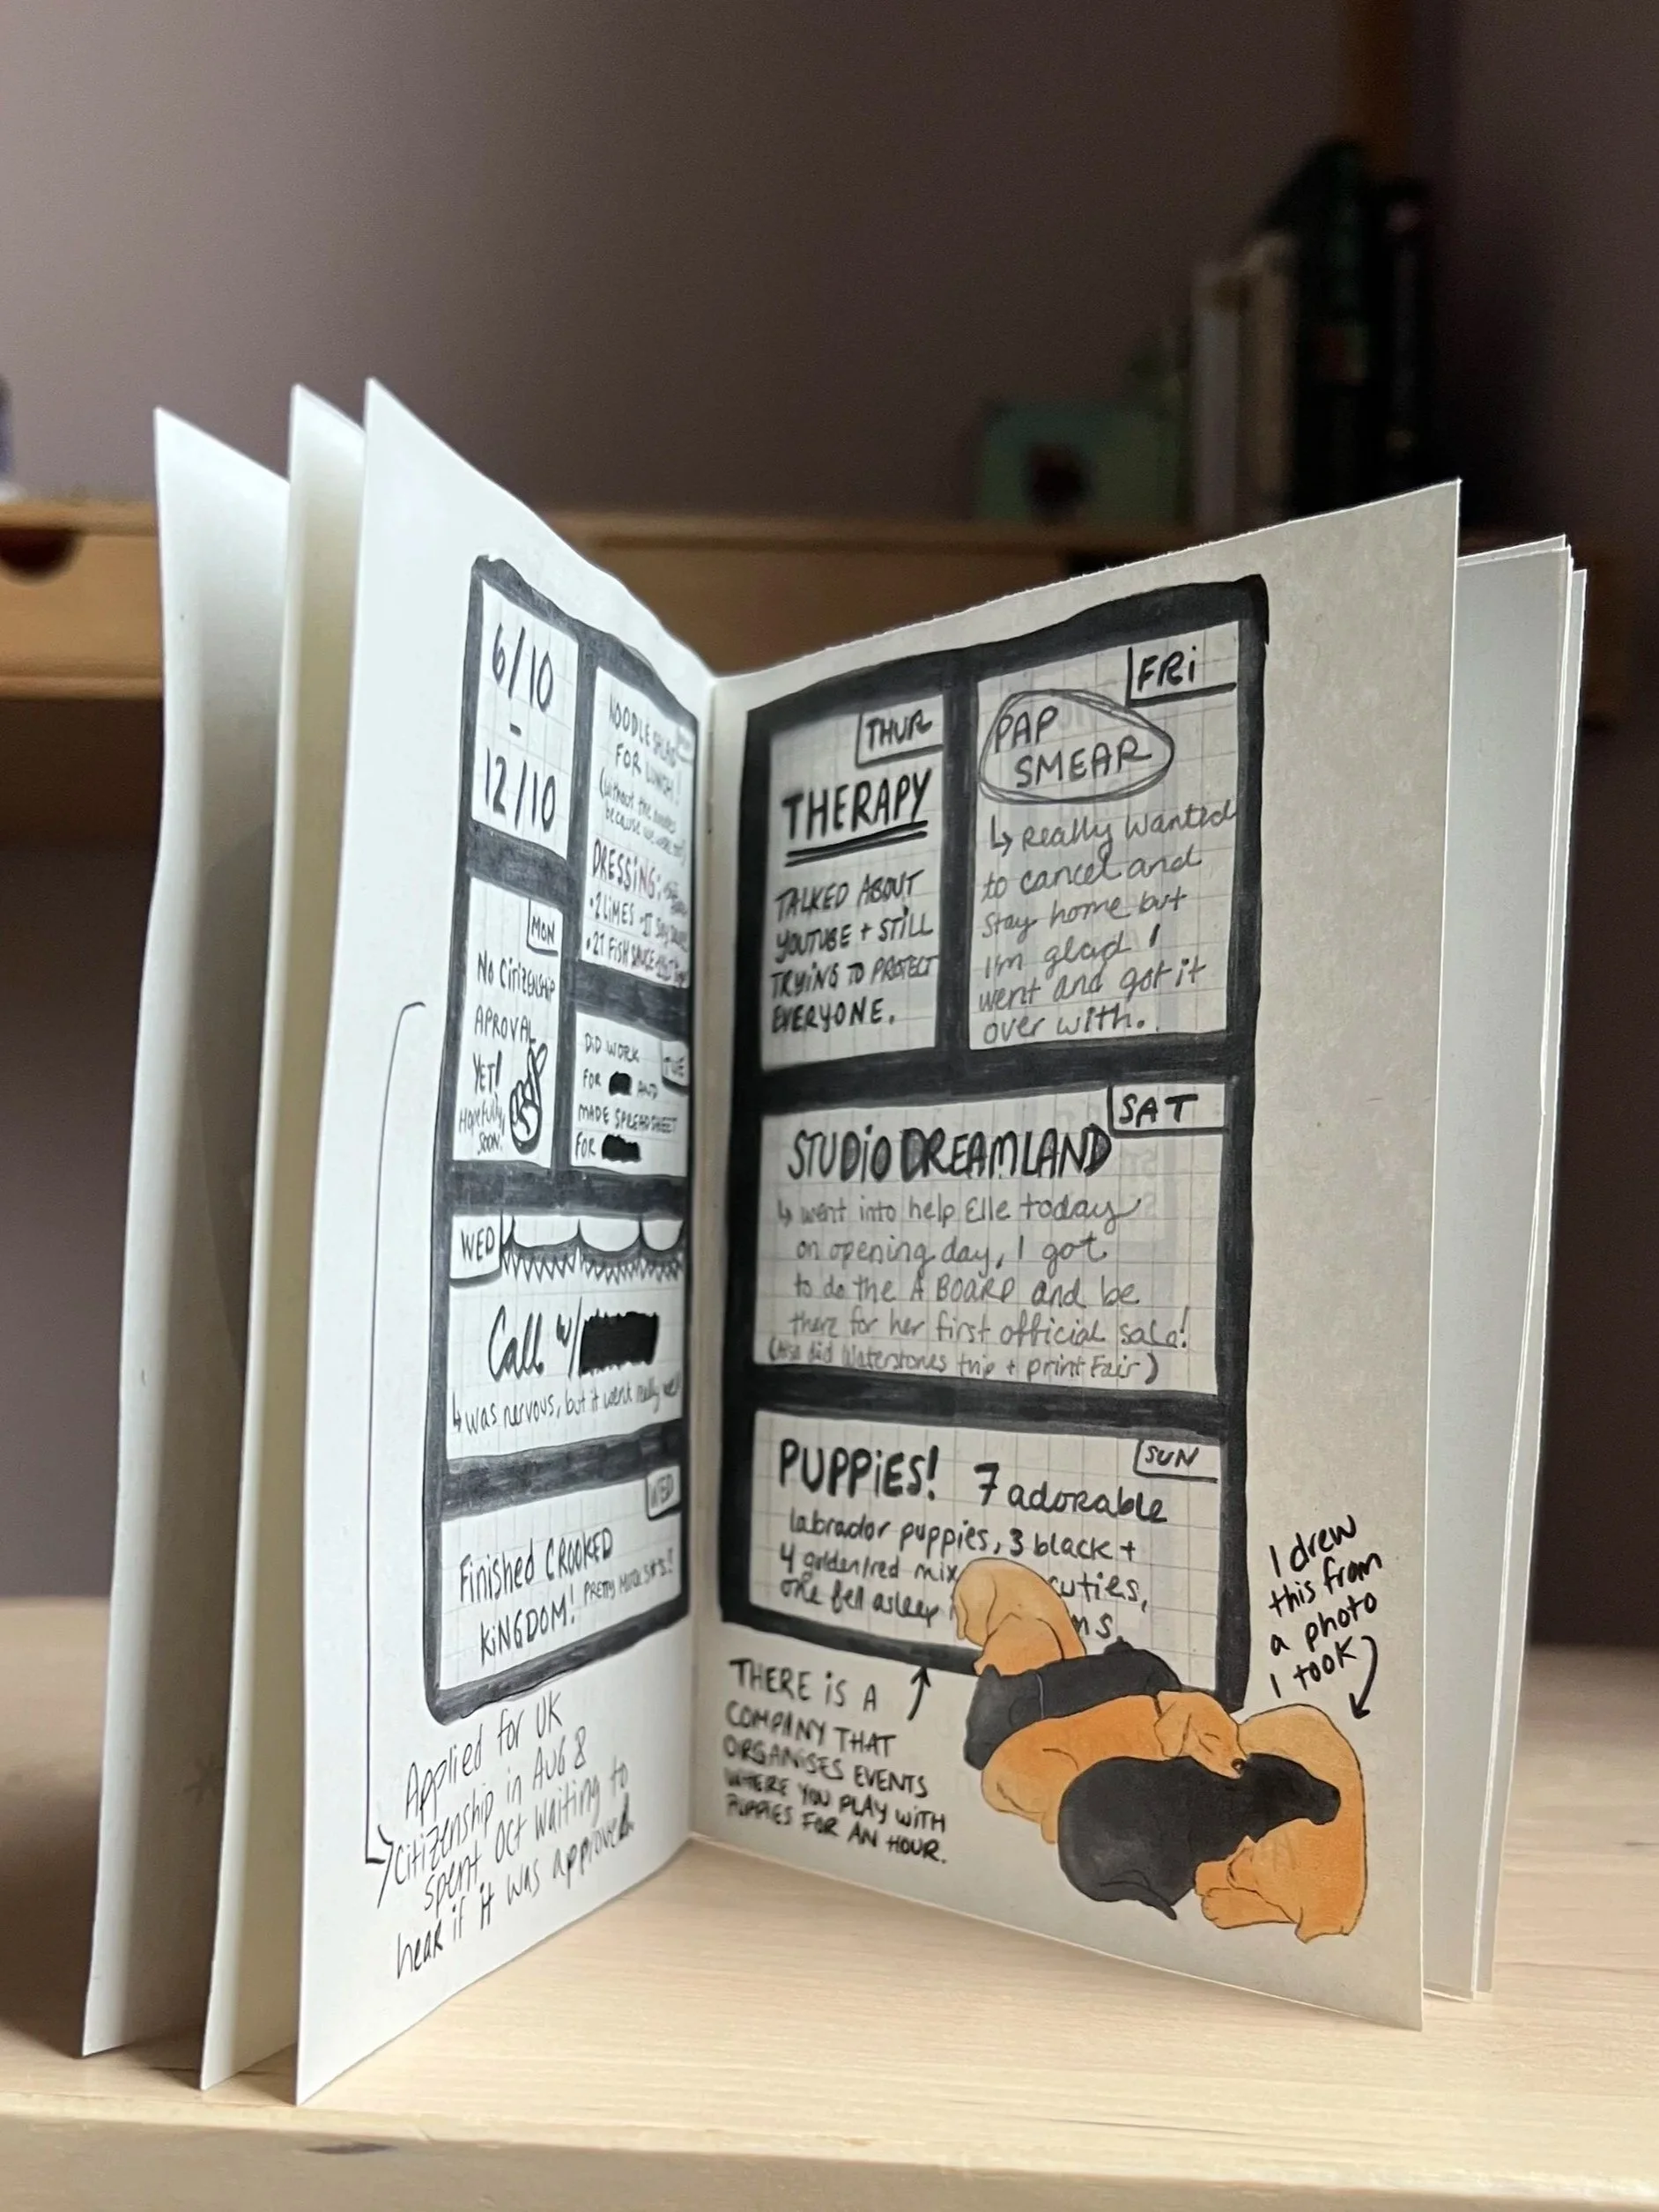 6/10
-
12/10
NOODLE SALAD
FOR LUNCH!
(without the noodles
because we were out)
DRESSING:
• 2 LIMES
• 2T FISH SAUCE
MON
NO CITIZENSHIP
APROVAL
YET!
Hopefully
SOON!
TUE
DID WORK
FOR AND
MADE SPREADSHEET
FOR
WED
Call w/
↳ was nervous, but it went really well
WED
Finished CROOKED
KINGDOM! PRETTY MUCH 5★S!
Applied for UK
citizenship in AUG &
spent Oct waiting to
hear if it was approved.
THUR
THERAPY
TALKED ABOUT
YOUTUBE + STILL
TRYING TO PROTECT
EVERYONE.
FRI
PAP
SMEAR
↳ Really wanted
to cancel and
stay home but
I'm glad I
went and got it
over with.
SAT
STUDIO DREAMLAND
↳ went into help Elle today
on opening day, I got
to do the A BOARD and be
there for her first official sale!
(Also did Waterstones trip + print Fair)
SUN
PUPPIES! 7 adorable
labrador puppies, 3 black +
4 golden/red mix cuties,
one fell asleep
THERE IS A
COMPANY THAT
ORGANISES EVENTS
WHERE YOU PLAY WITH
PUPPIES FOR AN HOUR.
I drew
this from
a photo
I took